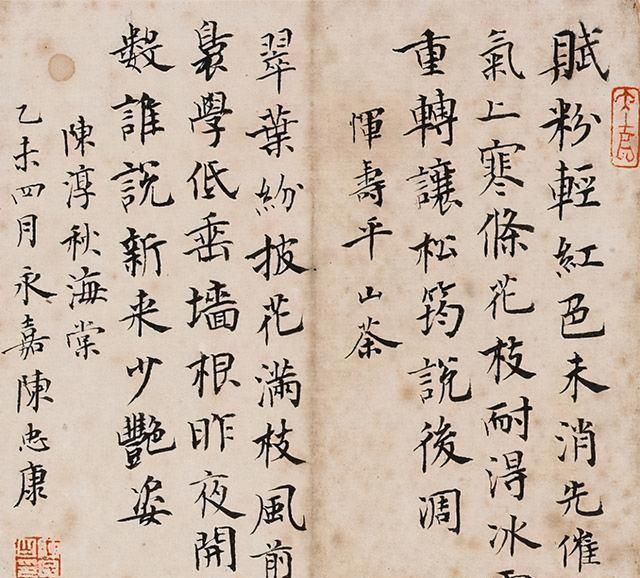 賦粉輕紅色未消先催
氣上寒條花枝耐得冰
重轉讓松筠說後凋
惲壽平山茶
翠葉紛披花滿枝風前
裊學低垂墻根昨夜開
數誰說新来少艷姿
陳淳秋海棠
乙未四月永嘉陳忠康